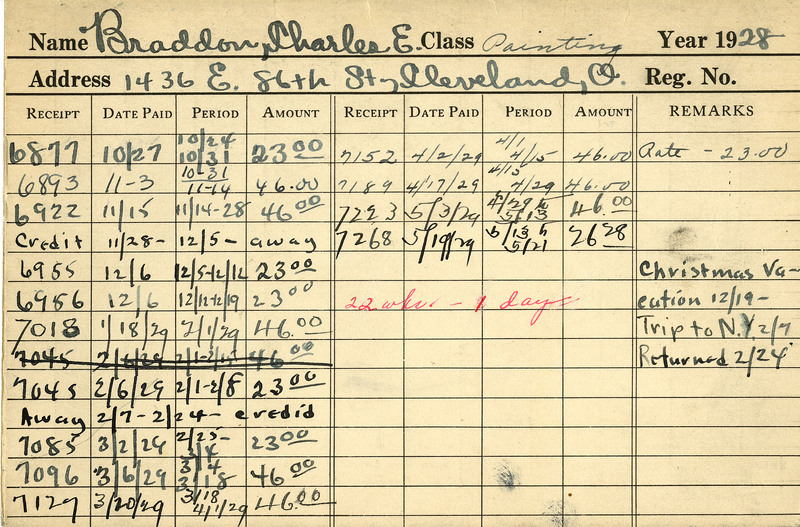 Name Braddon, Charles E. Class Painting Year 1928
Address 1436 E. 86th St., Cleveland, O. Reg. No.
RECEIPT DATE PAID PERIOD AMOUNT RECEIPT DATE PAID PERIOD AMOUNT REMARKS
6877 10/27 10/24 10/31 23.00 7152 4/2/29 4/1 4/15 46.00 Rate - 23.00
6893 11-3 10-31 11-14 46.00 7189 4/17/29 4/15 4/29 46.00
6922 11/15 11/14-28 46.00 7223 5/3/29 4/29 5/13 46.00
Credit 11/28- 12/5- away 7268 5/19/29 5/13 5/21 26.28
6955 12/6 12/5-12/12 23.00 Christmas Va-
6956 12/6 12/12-12/19 23.00 22 wks. - 1 days cation 12/19-
7018 1/18/29 2/1/29 46.00 Trip to N.Y. 2/7
7045 2/6/29 2/1-2/15 46.00 Returned 2/24
7045 2/6/29 2/1-2/8 23.00
Away 2/7-2/24- credid
7085 3/2/29 2/25- 3/4 23.00
7096 3/6/29 3/4 3/18 46.00
7127 3/20/29 3/18 4/1/29 46.00